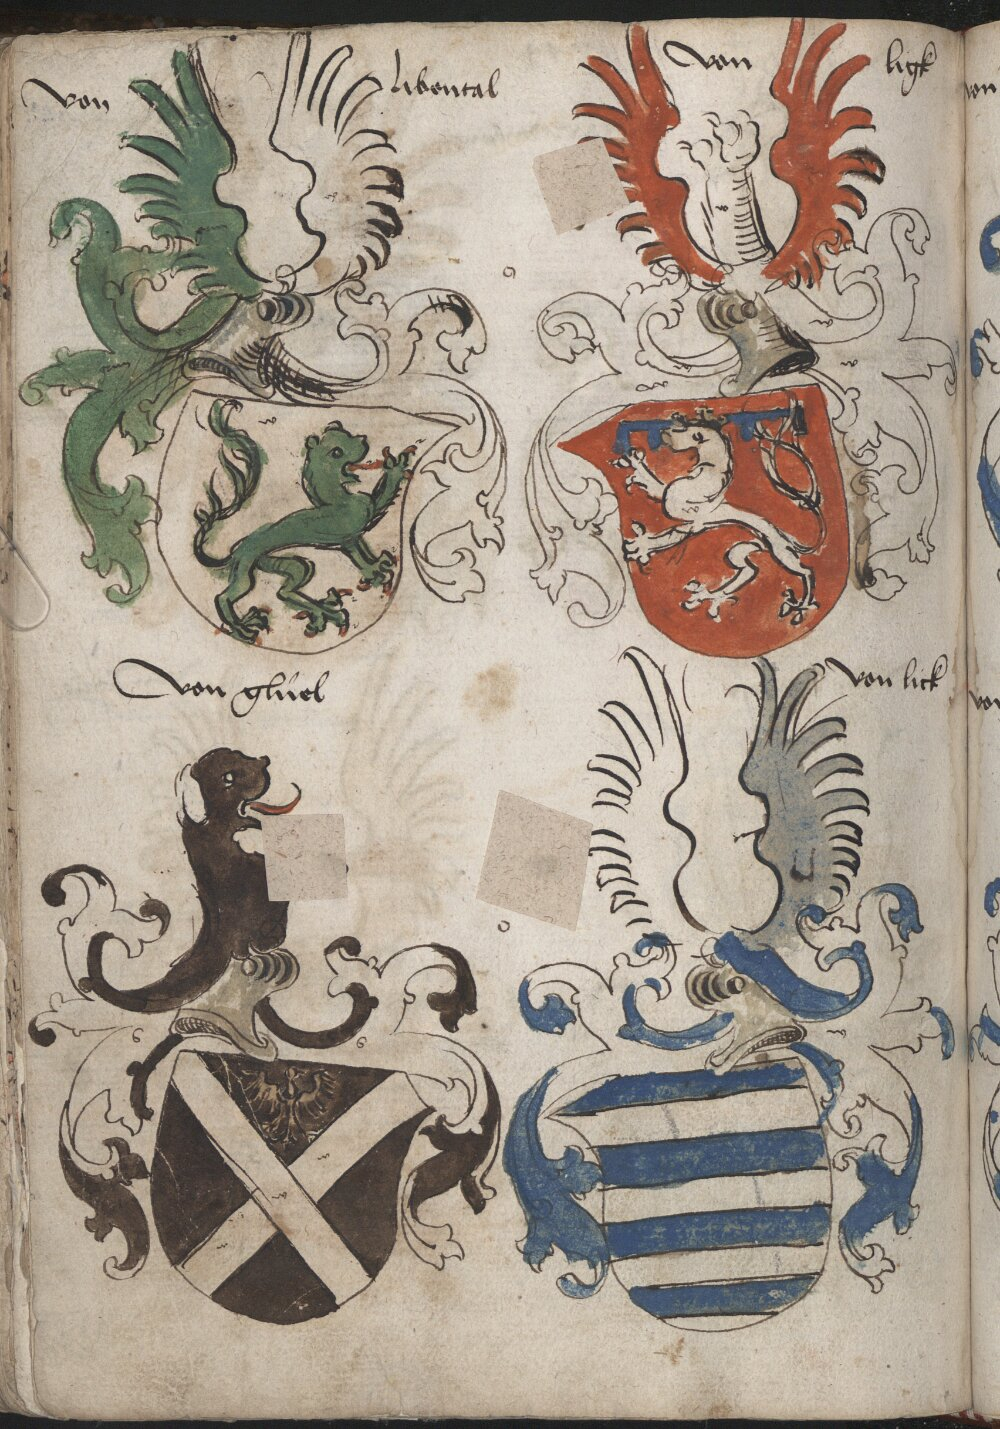 von libental
von ligk
von glüel
von lick
von
von